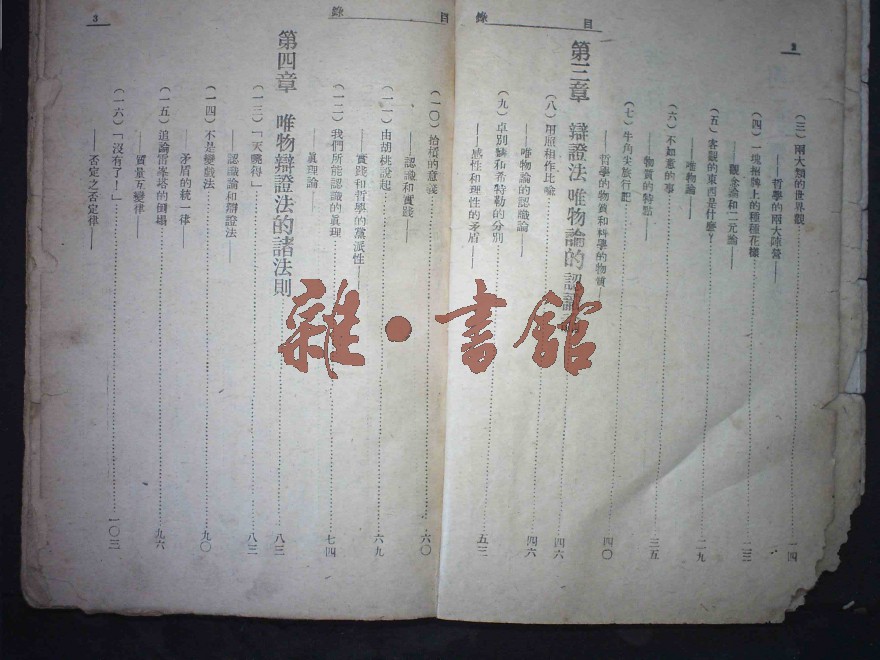 2
目錄
（三）兩大類的世界觀……一四
——哲學的兩大陣營——
（四）一塊招牌上的種種花樣……二三
——觀念論和二元論——
（五）客觀的東西是什麼？……二九
——唯物論——
（六）不如意的事……三五
——物質的特點——
（七）牛角尖旅行記……四〇
——哲學的物質和科學的物質——
第三章 辯證法唯物論的認識……四六
（八）用照相作比喻……四六
——唯物論的認識論——
（九）卓別麟和希特勒的分別……五三
——感性和理性的矛盾——
目錄
3
（一〇）抬槓的意義……六〇
——認識和實踐——
（一一）由胡桃說起……六九
——實踐和哲學的黨派性——
（一二）我們所能認識的眞理……七四
——眞理論——
第四章 唯物辯證法的諸法則……八三
（一三）「天曉得」……八三
——認識論和辯證法——
（一四）不是變戲法……九〇
——矛盾的統一律——
（一五）追論雷峯塔的倒塌……九六
——質量互變律——
（一六）「沒有了！」……一〇三
——否定之否定律——
雜·書館